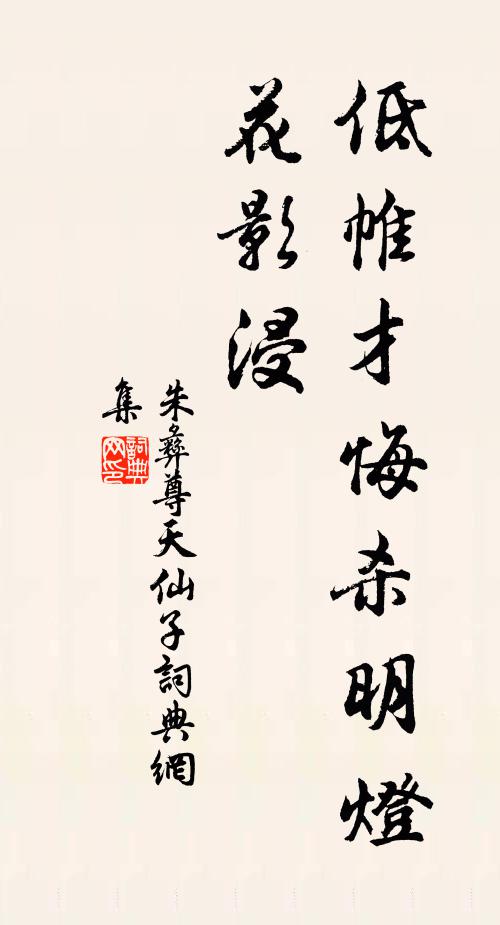 低帷才悔杀明燈
花影浸
朱彝尊天仙子詞典網
集
詞典
网印